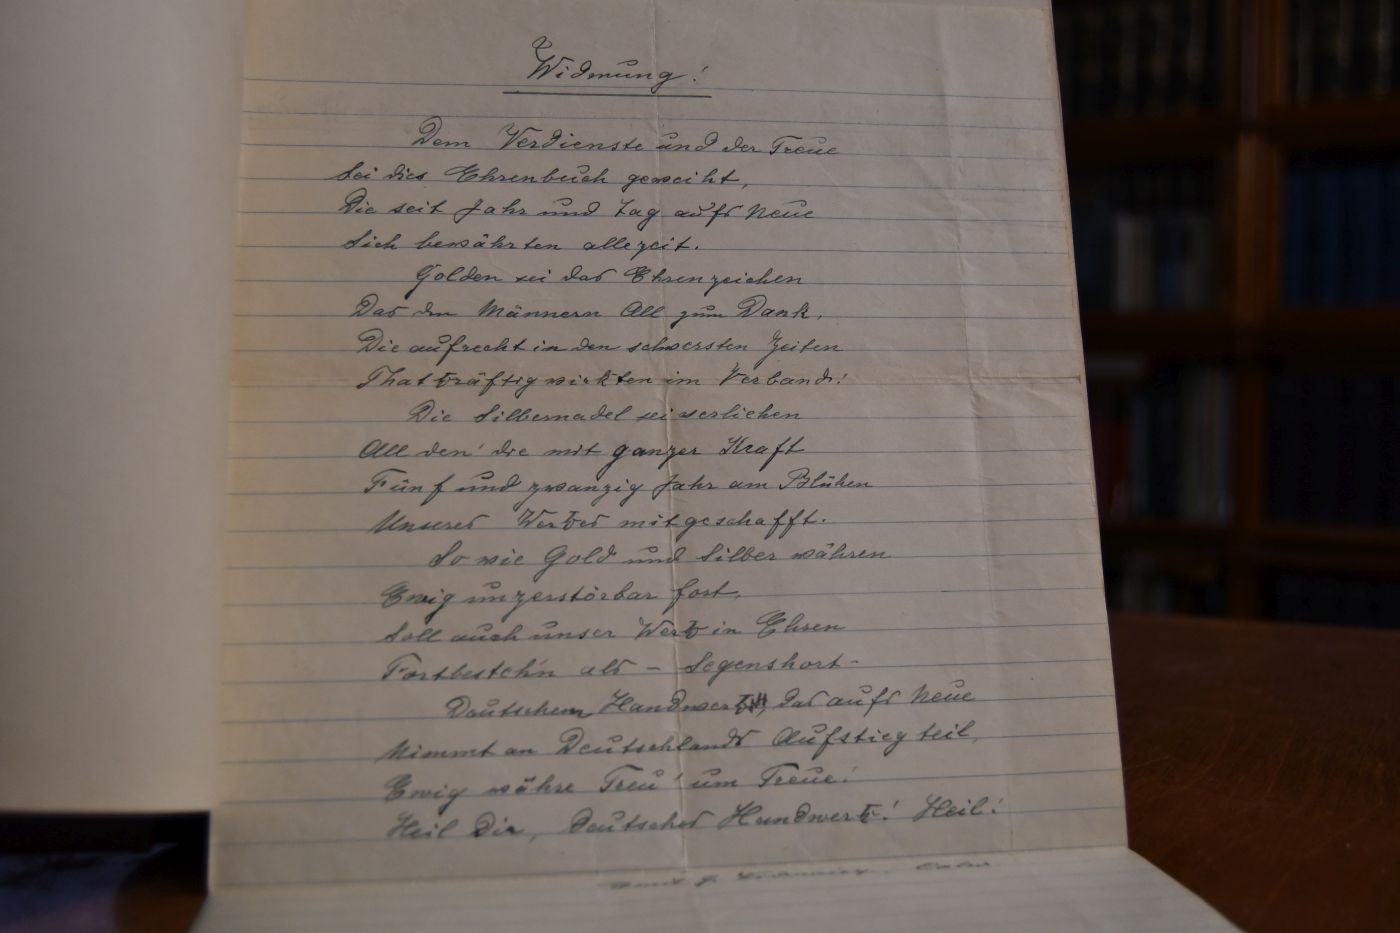 Widmung!
Dem Verdienste und der Treue
Sei dies Ehrenbuch geweiht,
Die seit Jahr und Tag aufs Neue
Sich bewährten allezeit.
Golden sei das Ehrenzeichen
Das den Männern All zum Dank,
Die aufrecht in den schwersten Zeiten
Thatkräftig wirkten im Verband!
Die Silbernadel sei verliehen
All den' die mit ganzer Kraft
Fünf und zwanzig Jahr am Blühen
Unseres Werkes mitgeschafft.
So wie Gold und Silber währen
Ewig unzerstörbar fort,
Soll auch unser Werk in Ehren
Fortbesteh'n als – Segenshort –
Deutschem Handwerk, das aufs Neue
Nimmt an Deutschlands Aufstieg teil,
Ewig währe Treu' um Treue!
Heil Dir, deutsches Handwerk! Heil!